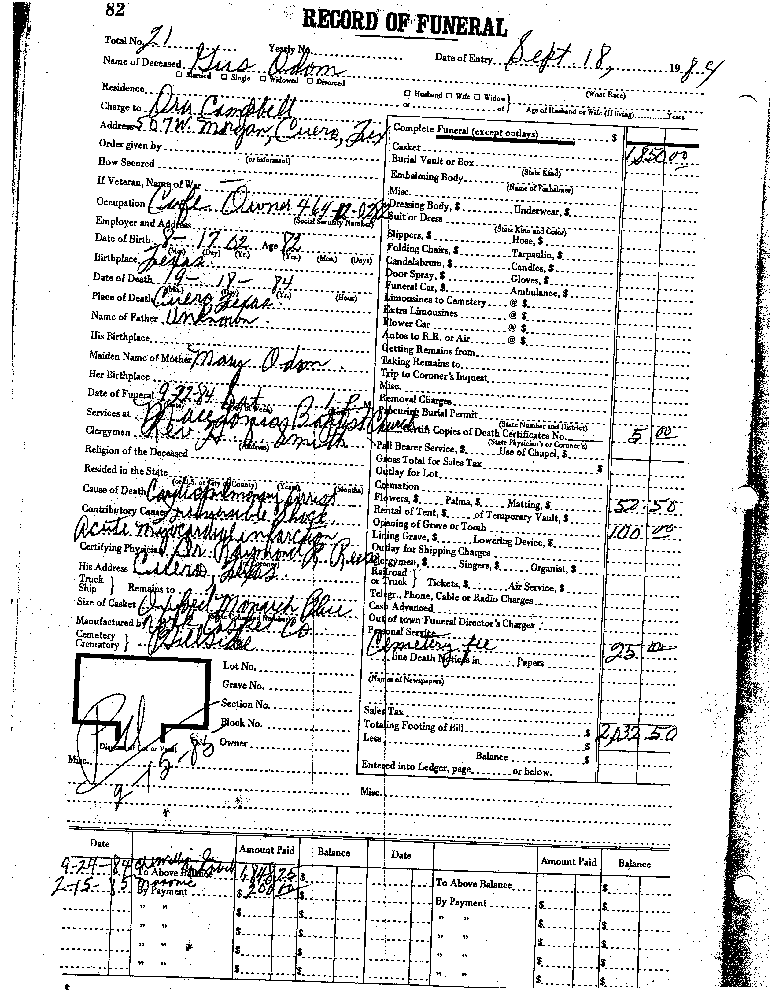 82
RECORD OF FUNERAL
Total No. 21 Yearly No. Date of Entry Sept 18, 1984
Name of Deceased Gus Odom
Married Single Widowed Divorced (What Race)
Residence Husband Wife Widow
or of Age of Husband or Wife (if living) Years
Charge to Ora Campbell
Address 507 W. Morgan, Cuero, Tex
Order given by
(or informant)
How Secured
If Veteran, Name of War —
Occupation Cafe Owner 464
(Social Security Number)
Employer and Address
Date of Birth 8-17 02 Age 82
(Mo.) (Day) (Yr.) (Yrs.) (Mos.) (Days)
Birthplace Texas
Date of Death 9-18-84
(Yr.) (Hour)
Place of Death Cuero Texas
Name of Father Unknown
His Birthplace
Maiden Name of Mother Mary Odom
Her Birthplace
Date of Funeral 9 22 84 Sat 1 P M
Services at Macedonia Baptist Church
Clergymen Rev Smith
(Address)
Religion of the Deceased
Resided in the State
(Years) (Months)
Cause of Death Cardiopulmonary Arrest
Contributory Causes Irreversible Shock
Acute Myocardial infarction
Certifying Physician Dr. Raymond R. Reese
His Address Cuero Texas
Truck Ship Remains to
Size of Casket Monarch Blue
Manufactured by Casket Co
Cemetery Crematory Hillside
Lot No.
Grave No.
Section No.
Block No.
Owner
Diagram of Lot or Vault
Pd
Misc.
Complete Funeral (except outlays) $
Casket 1,850 00
Burial Vault or Box
(State Kind)
Embalming Body
(Name of Embalmer)
Misc.
Dressing Body, $ Underwear, $
Suit or Dress
(State Kind and Color)
Slippers, $ Hose, $
Folding Chairs, $ Tarpaulin, $
Candelabrum, $ Candles, $
Door Spray, $ Gloves, $
Funeral Car, $ Ambulance, $
Limousines to Cemetery @ $
Extra Limousines @ $
Flower Car @ $
Autos to R.R. or Air @ $
Getting Remains from
Taking Remains to
Trip to Coroner's Inquest
Misc.
Removal Charges
Procuring Burial Permit
(State Number and District)
Certifi Copies of Death Certificates No. 5 00
(State Physician's or Coroner's)
Pall Bearer Service, $ Use of Chapel, $
Gross Total for Sales Tax $
Outlay for Lot
Cremation
Flowers, $ Palms, $ Matting, $ 52 50
Rental of Tent, $ of Temporary Vault, $
Opening of Grave or Tomb 100 00
Lining Grave, $ Lowering Device, $
Outlay for Shipping Charges
Clergymen, $ Singers, $ Organist, $
Railroad or Truck Tickets, $ Air Service, $
Telegr., Phone, Cable or Radio Charges
Cash Advanced
Out of town Funeral Director's Charges
Personal Service
Cemetery fee 25 00
line Death Notices in Papers
(Names of Newspapers)
Sales Tax
Totaling Footing of Bill $ 2,032 50
Less $
Balance $
Entered into Ledger, page or below.
Misc.
Date Amount Paid Balance Date Amount Paid Balance
9-24-84 To Above Balance 1,848 25 $ To Above Balance $
2-15-85 By Payment $ 200 00 $ By Payment $
" " $ $ " " $
" " $ $ " " $
" " $ $ " " $
" " $ $ " " $